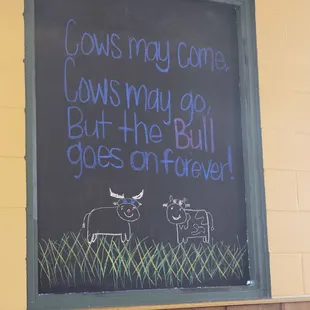 Cows may come,
Cows may go,
But the Bull
goes on forever!